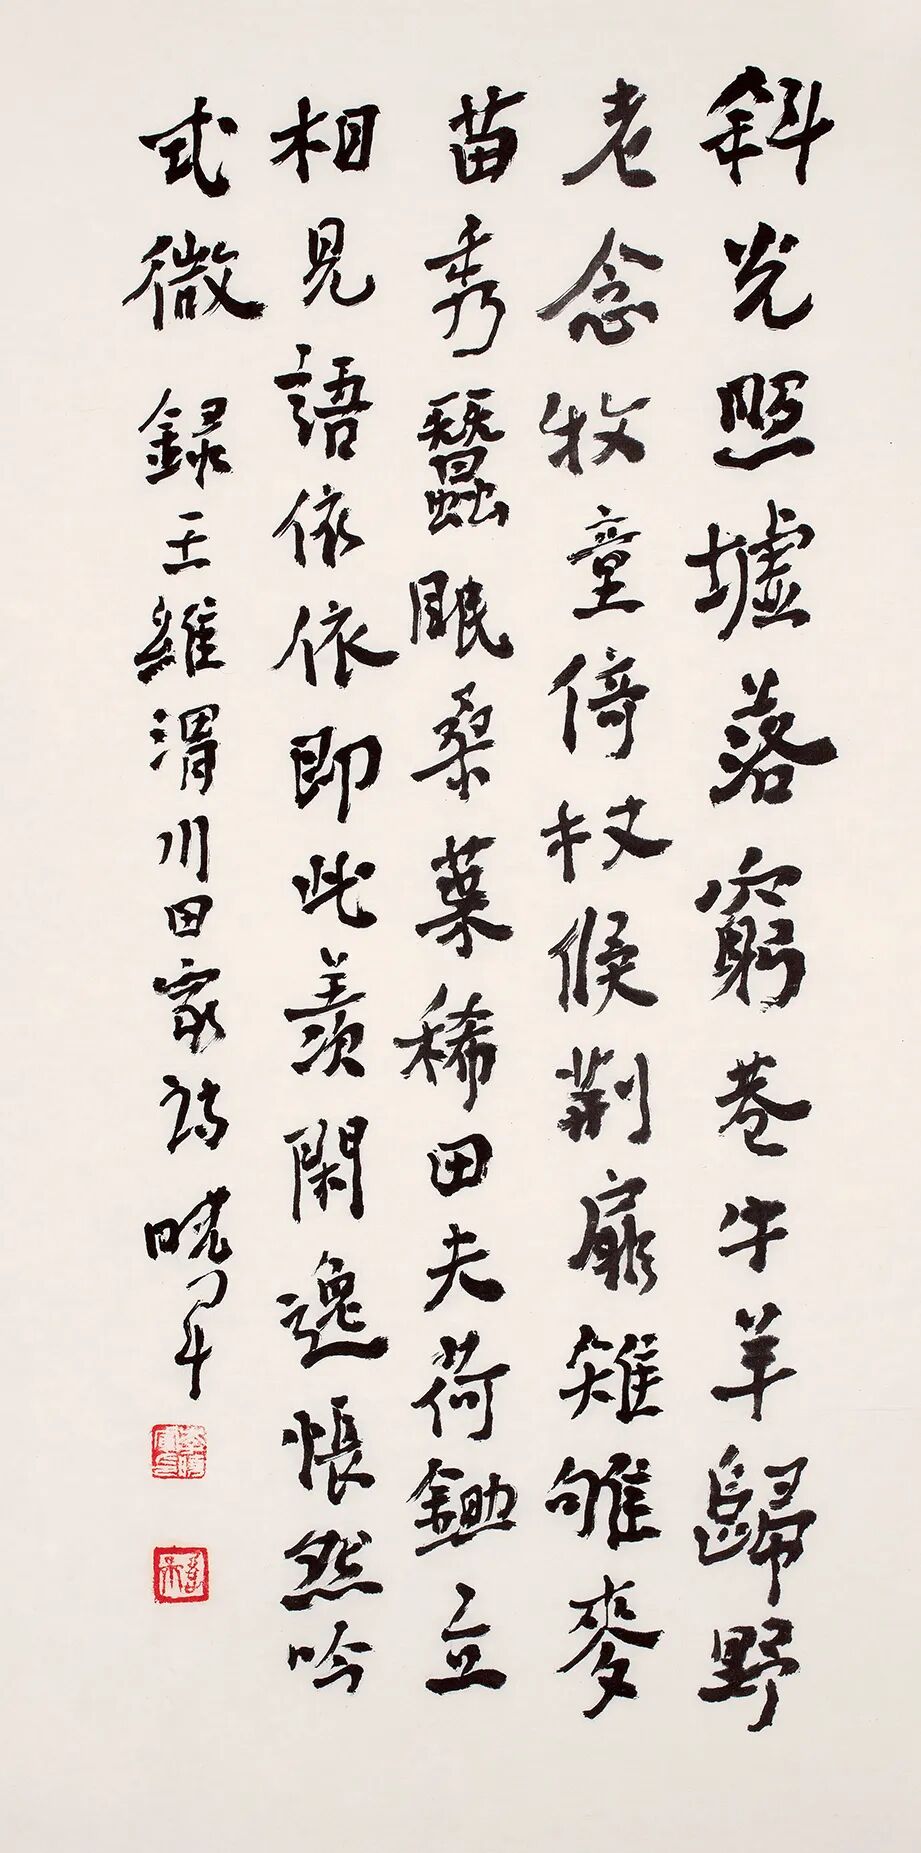 斜光照墟落窮巷牛羊歸野
老念牧童倚杖候荊扉雉雊麥
苗秀蠶眠桑葉稀田夫荷鋤立
相見語依依即此羨閑逸悵然吟
式微 錄王維渭川田家詩 曉軍